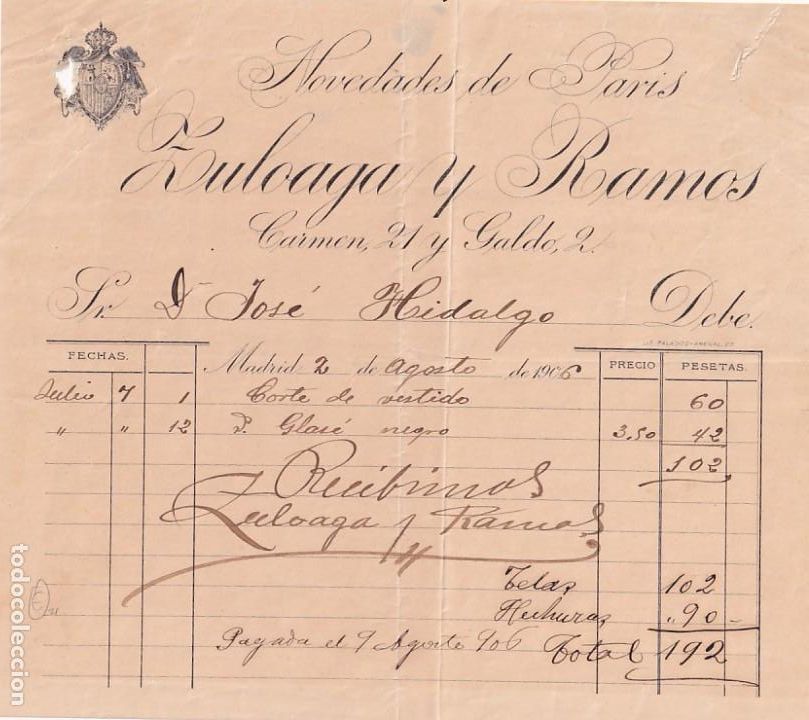 Novedades de Paris
Zuloaga y Ramos
Carmen, 21 y Galdo, 2.
Sr. D José Hidalgo Debe.
LIT. PALACIOS-ARENAL, 27
FECHAS. Madrid 2 de Agosto de 1906 PRECIO PESETAS.
Julio 7 1 Corte de vestido 60
" " 12 P. Glasé negro 3.50 42
102
Recibimos
Zuloaga y Ramos
Telas 102
Hechuras 90 -
Pagada el 9 Agosto 906 Total 192
todocoleccion.net